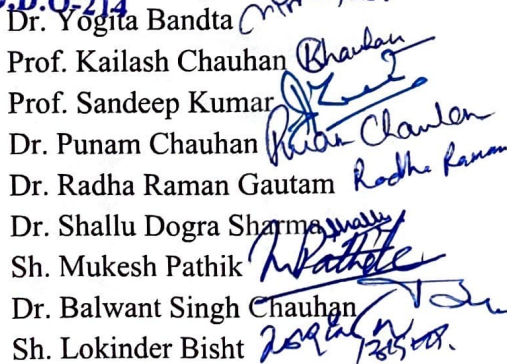 D.D.O-214
Dr. Yogita Bandta
Prof. Kailash Chauhan Khauhan
Prof. Sandeep Kumar
Dr. Punam Chauhan
Dr. Radha Raman Gautam Radha Raman
Dr. Shallu Dogra Sharma Shallu
Sh. Mukesh Pathik
Dr. Balwant Singh Chauhan
Sh. Lokinder Bisht